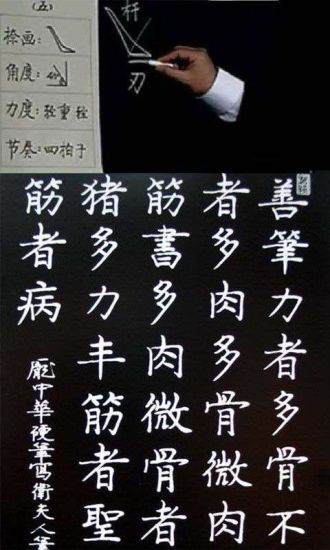 (五)
捺画:
角度: 45°
力度: 轻重轻
节奏: 四拍子
杆
刃
善筆力者多骨不
者多肉多骨微肉
筋書多肉微骨者
猪多力丰筋者聖
筋者病
龐中華硬筆寫衛夫人筆